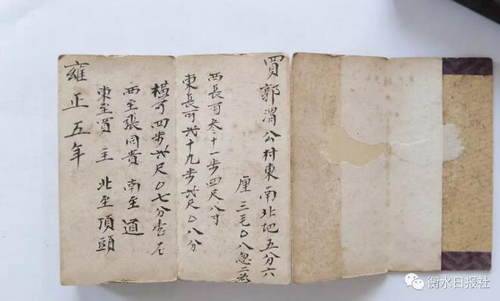 買郭渭公村東南北地五分六
厘三毛〇八忽二
西長可叁十一步四尺八寸
東長可十九步尺〇八分
橫可四步尺〇七分壹
西至張同貴 南至道
東至買主 北至頂頭
雍正五年
衡水日报社